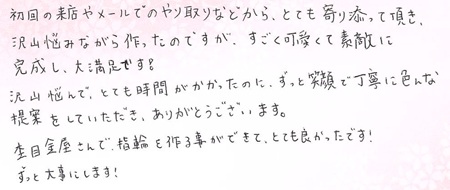 初回の来店やメールでのやり取りなどから、とても寄り添って頂き、
沢山悩みながら作ったのですが、すごく可愛くて素敵に
完成し、大満足です!
沢山悩んで、とても時間がかかったのに、ずっと笑顔で丁寧に色んな
提案をしていただき、ありがとうございます。
杢目金屋さんで、指輪を作る事ができて、とても良かったです!
ずっと大事にします!